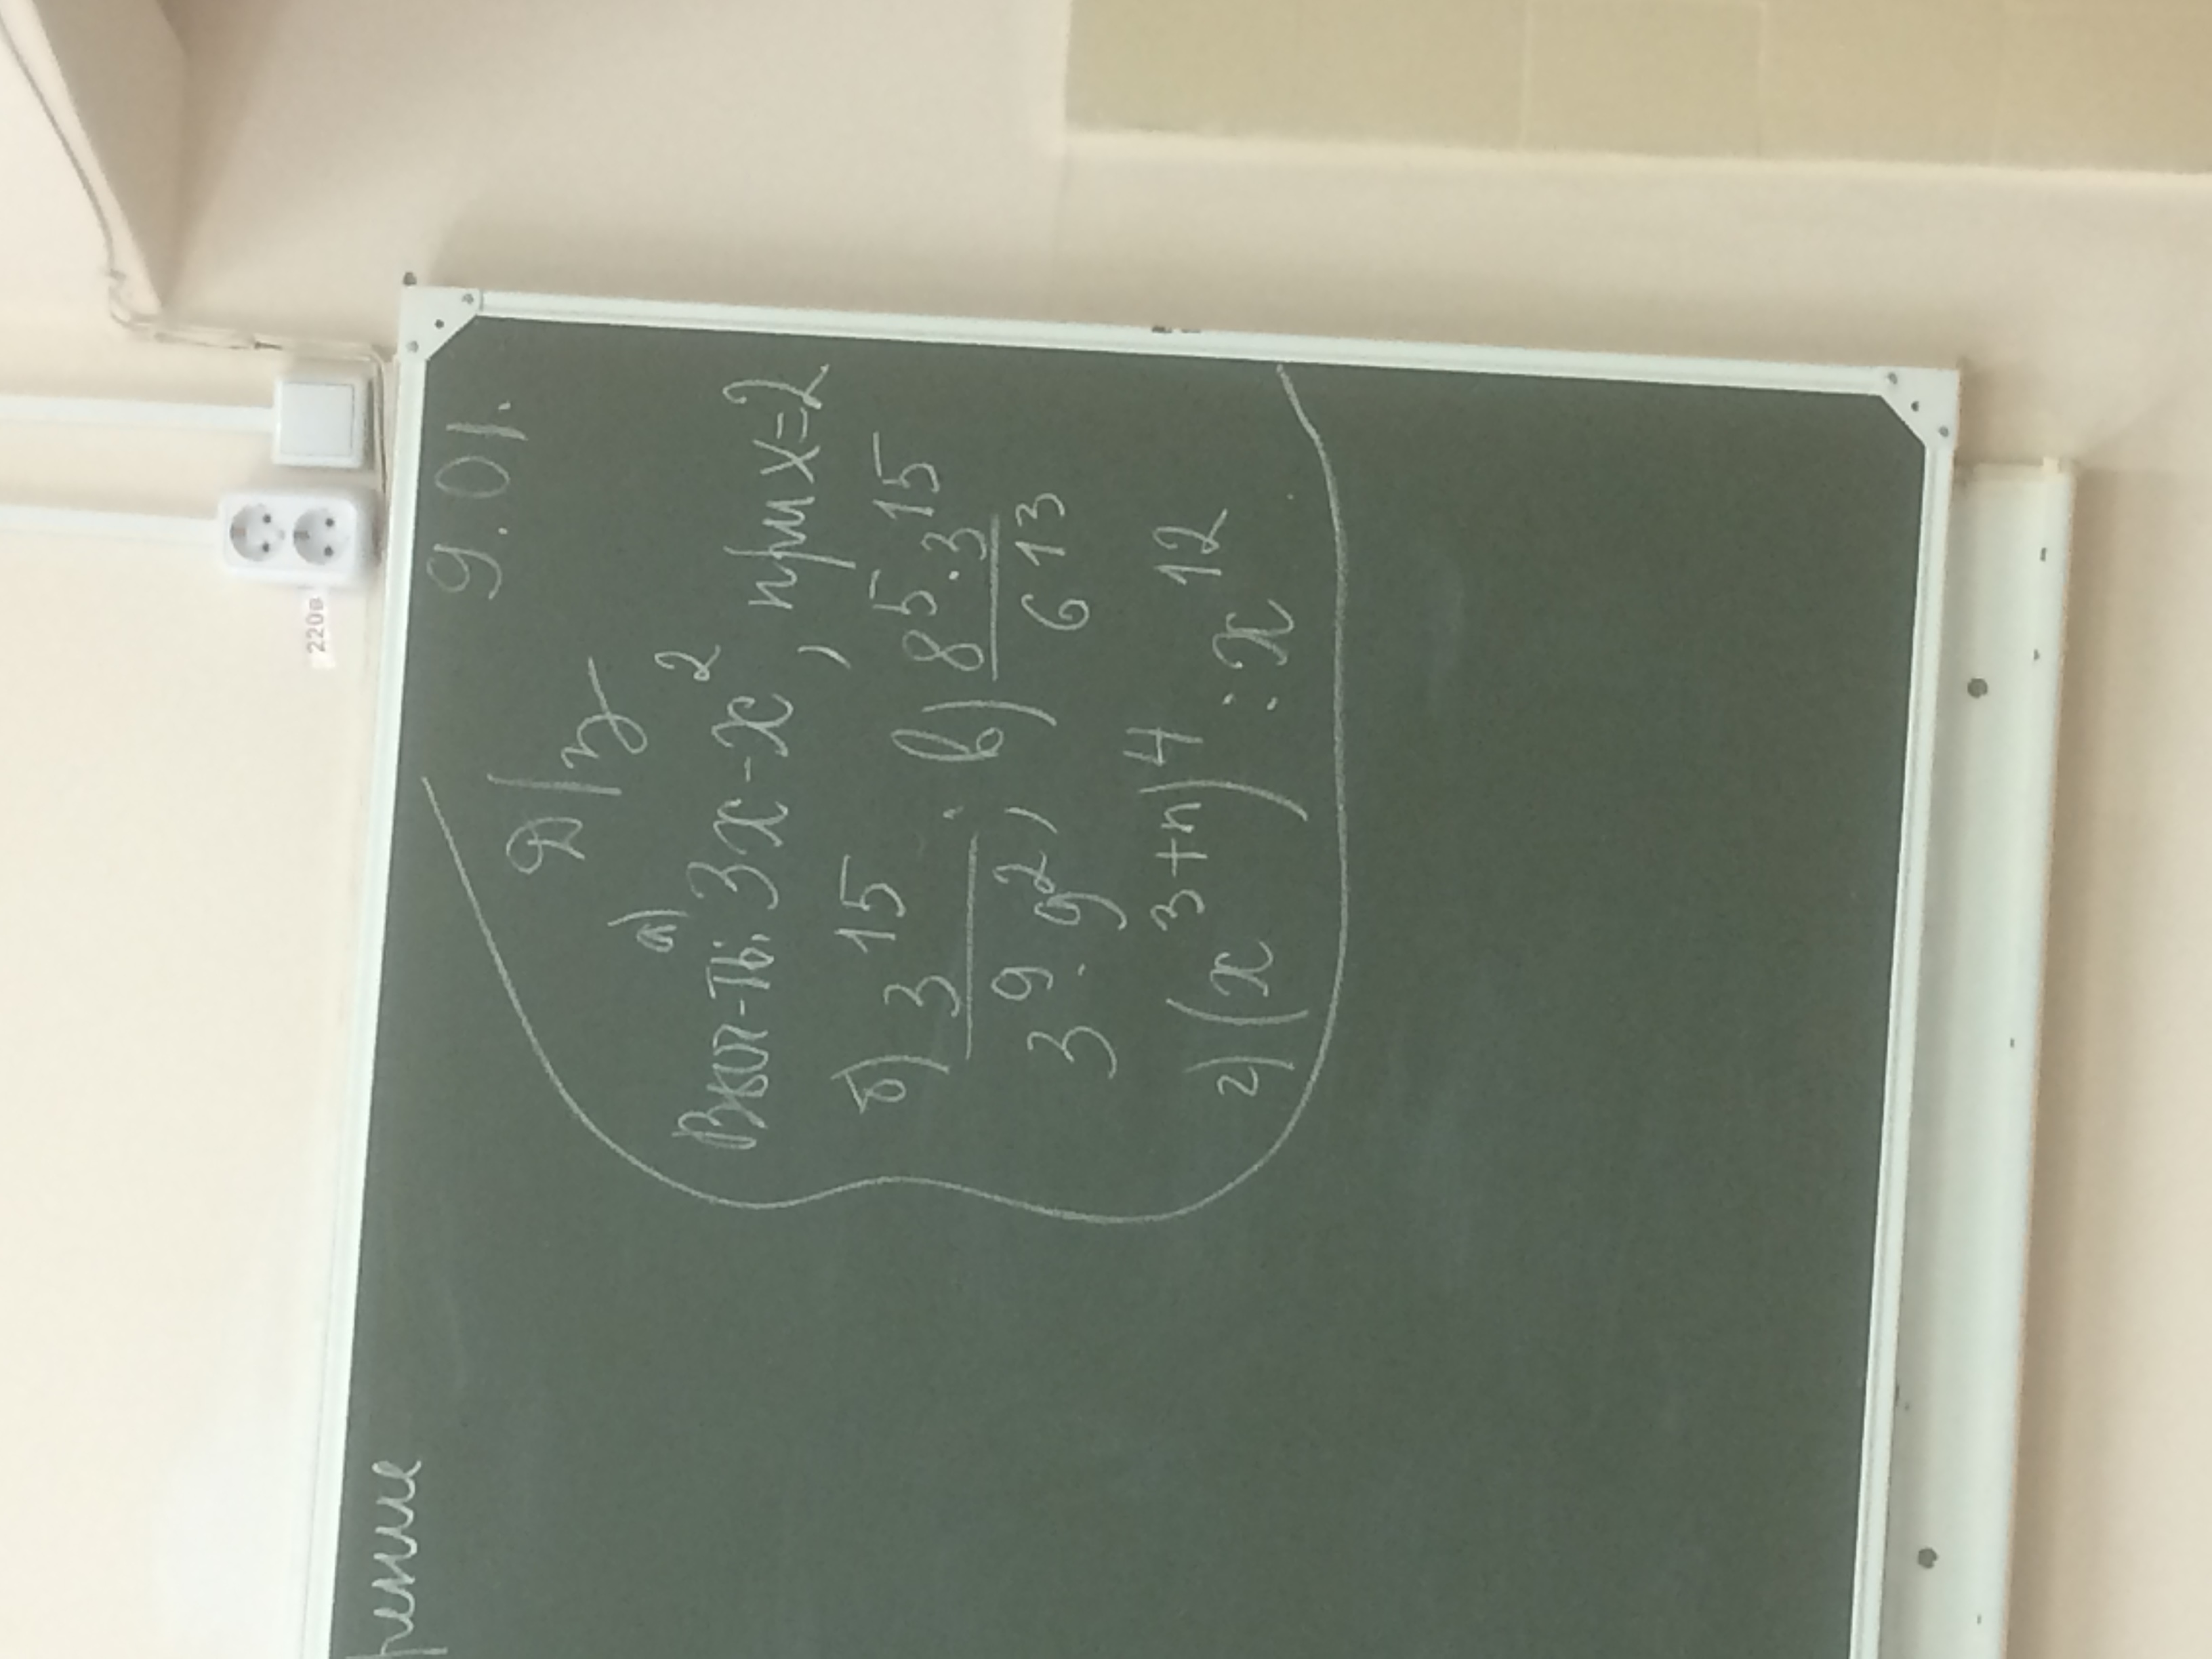 9.01.
Д/з
а)
Выч-ть: 3x-x², при x=2
б) 3¹⁵ / 3⁹·9² ; в) 8⁵·3¹⁵ / 6¹³
г) (x³⁺ⁿ)⁴ : x¹²
220в